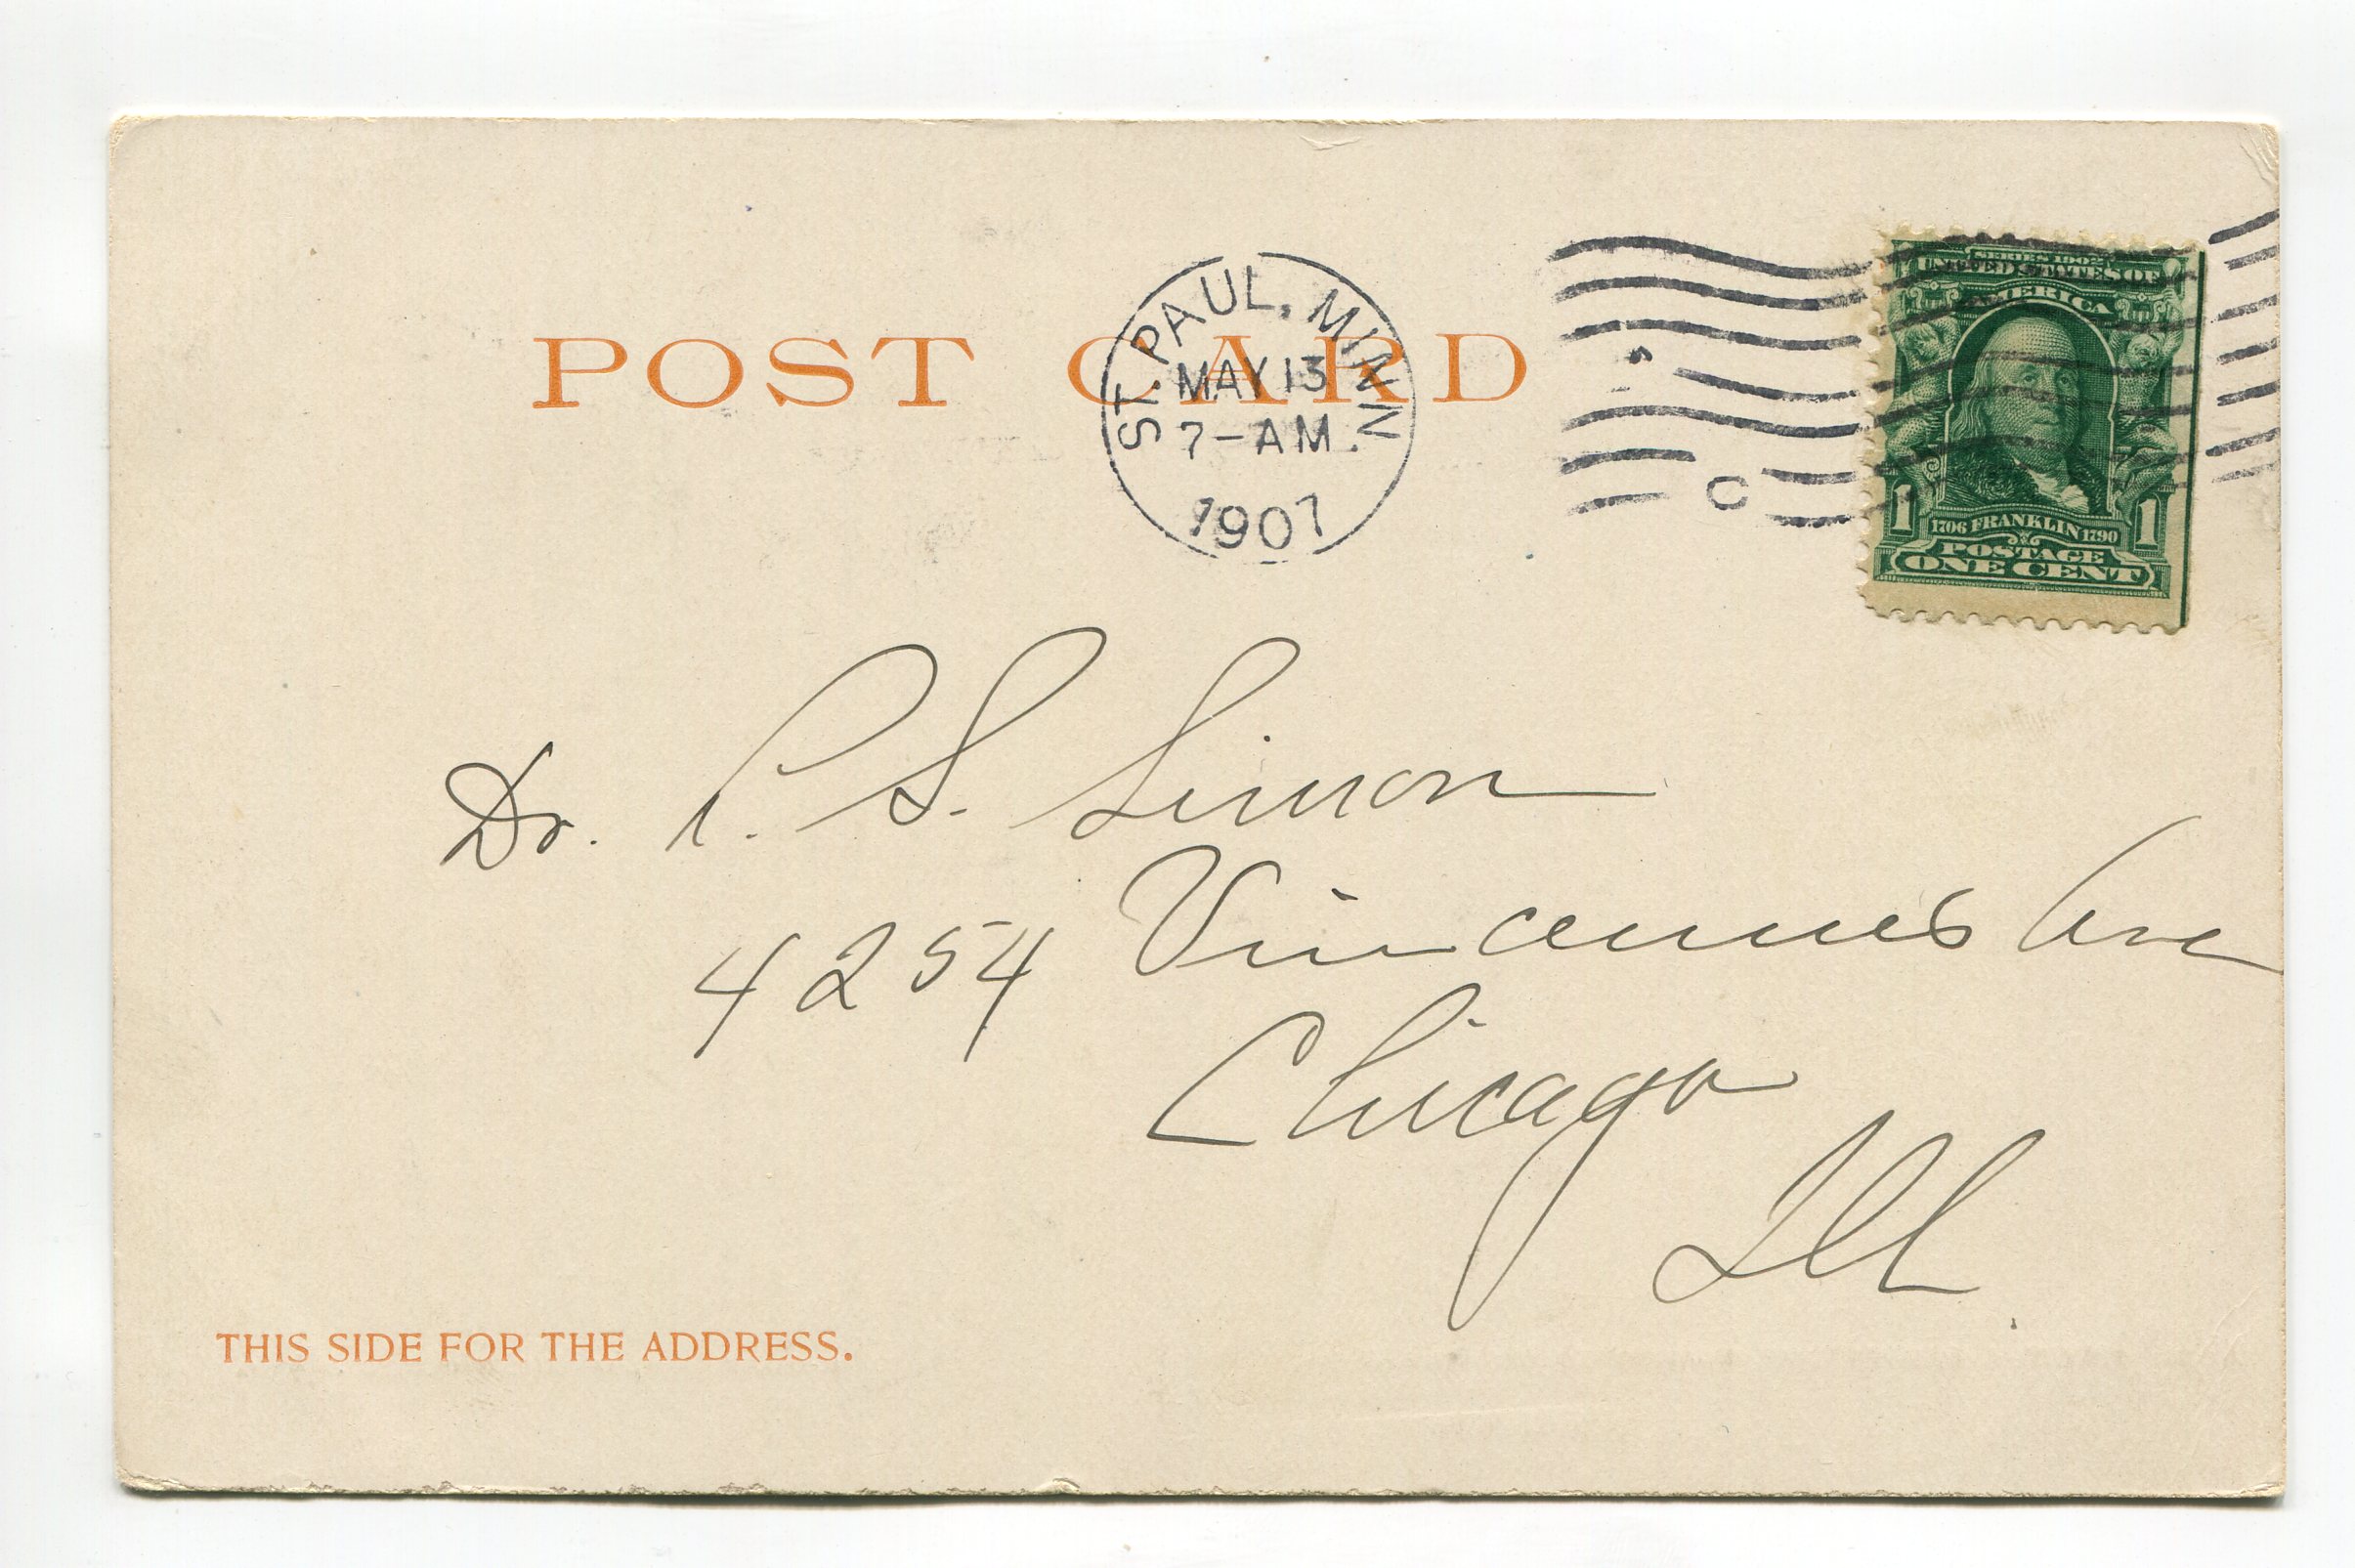 POST CARD
ST. PAUL, MINN.
MAY 13
7-AM
1907
C
SERIES 1902
UNITED STATES OF
AMERICA
1 1706 FRANKLIN 1790 1
POSTAGE
ONE CENT
Dr. P. S. Simon
4254 Vincennes Ave
Chicago
Ill.
THIS SIDE FOR THE ADDRESS.